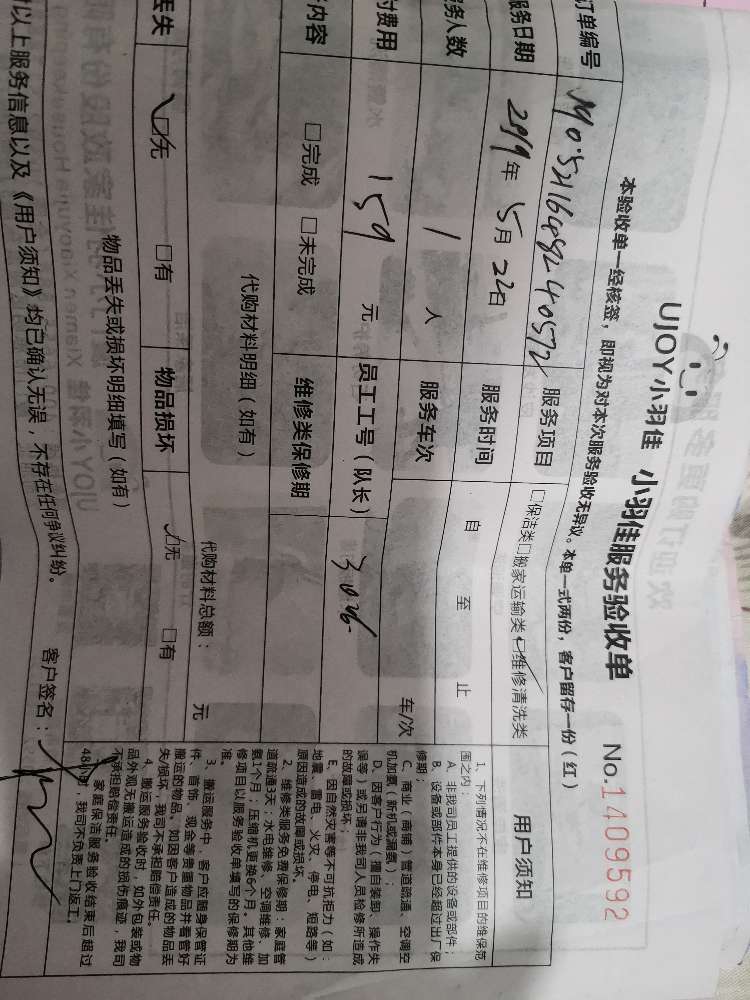 UJOY小羽佳 小羽佳服务验收单 No.1409592
本验收单一经核签，即视为对本次服务验收无异议。本单一式两份，客户留存一份（红）
订单编号 服务项目 □保洁类□搬家运输类□维修清洗类
服务日期 年5月22日 服务时间 自 至 止
务人数 1 人 服务车次 车/次
付费用 159 元 员工工号（队长）
内容 □完成 □未完成 维修类保修期
代购材料明细（如有） 代购材料总额： 元
丢失 □无 □有 物品损坏 □无 □有
物品丢失或损坏明细填写（如有）
以上服务信息以及《用户须知》均已确认无误，不存在任何争议纠纷。 客户签名：
用户须知
1、下列情况不在维修项目的维保范
围之内：
A、非我司员工提供的设备或部件；
B、设备或部件本身已经超过出厂保
修期；
C、商业（商铺）管道疏通、空调空
机加氨（新机或漏氨）；
D、因客户行为（擅自装卸、操作失
误等）或另请非我司人员检修所造成
的故障或损坏；
E、因自然灾害等不可抗拒力（如：
地震、雷电、火灾、停电、短路等）
原因造成的故障或损坏。
2、维修类服务免费保修期：家庭管
道疏通3天；水电维修、空调维修、加
氨1个月；压缩机更换6个月。其他维
修项目以服务验收单填写的保修期为
准。
3、搬运服务中，客户应随身保管证
件、首饰、现金等贵重物品并看管好
搬运的物品。如因客户造成的物品丢
失/损坏，我司不承担赔偿责任。
4、搬运服务验收时，如外包装或物
品外观无搬运造成的损伤痕迹，我司
不承担赔偿责任。
家庭保洁服务验收结束后超过
48小时，我司不负责上门返工。